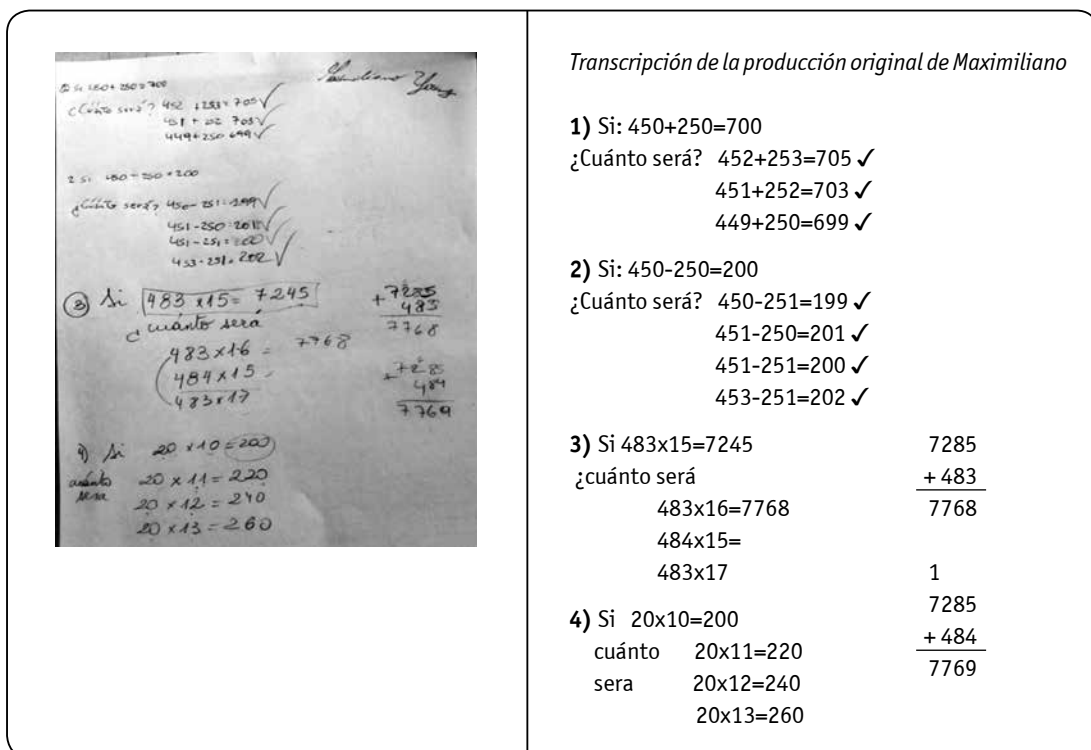 Maximiliano
2) Si 450+250=700
¿Cuánto será? 452 +253=705 ✓
451 + 252 703 ✓
449+250 699 ✓
2 Si 450-250=200
¿Cuánto será? 450-251=199 ✓
451-250=201 ✓
451-251=200 ✓
453-251=202 ✓
3 Si 483 x15= 7245
¿cuánto será
483x16 = 7768
484x15=
483x17
7285
+ 483
7768
7285
+ 484
7769
4) Si 20 x10=200
cuánto 20 x 11=220
sera 20 x12=240
20 x13=260
Transcripción de la producción original de Maximiliano
1) Si: 450+250=700
¿Cuánto será? 452+253=705 ✓
451+252=703 ✓
449+250=699 ✓
2) Si: 450-250=200
¿Cuánto será? 450-251=199 ✓
451-250=201 ✓
451-251=200 ✓
453-251=202 ✓
3) Si 483x15=7245
¿cuánto será
483x16=7768
484x15=
483x17
7285
+ 483
7768
1
7285
+ 484
7769
4) Si 20x10=200
cuánto 20x11=220
sera 20x12=240
20x13=260